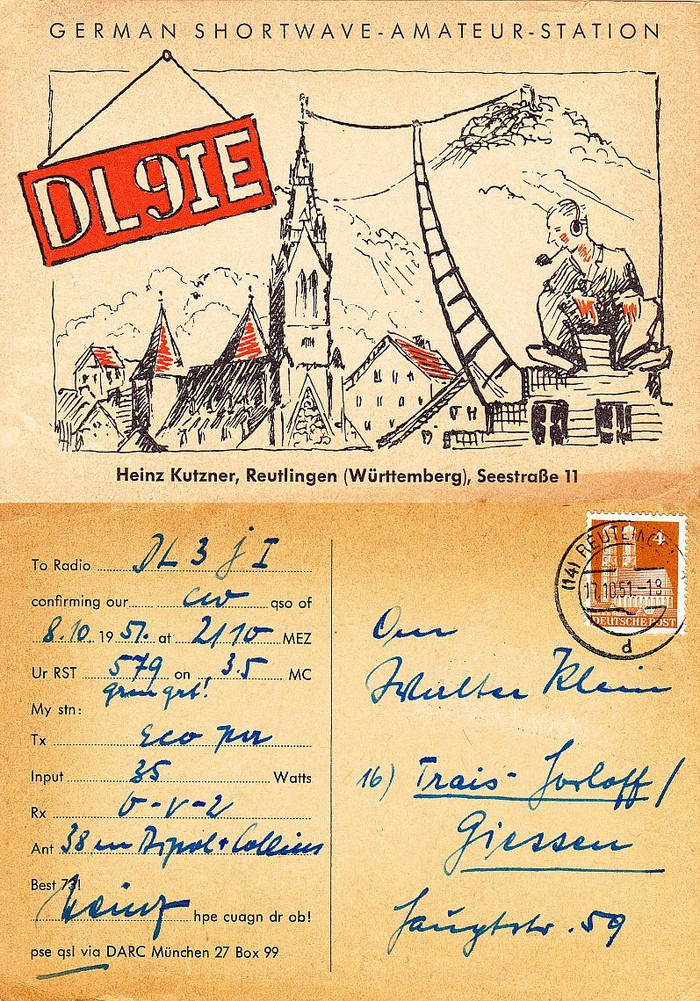 GERMAN SHORTWAVE-AMATEUR-STATION
DL9IE
Heinz Kutzner, Reutlingen (Württemberg), Seestraße 11
To Radio DL 3 jI
confirming our cw qso of
8.10. 1951. at 2110 MEZ
Ur RST 579 on 3.5 MC
My stn:
Tx Eco
Input 35 Watts
Rx 0-V-2
Ant 38 m Dipol + Collins
Best 73!
Heinz hpe cuagn dr ob!
pse qsl via DARC München 27 Box 99
4
DEUTSCHE POST
(14) REUTLING
17.10.51.-18
d
Walter Klein
16) Trais-Horloff /
Giessen
Hauptstr. 59